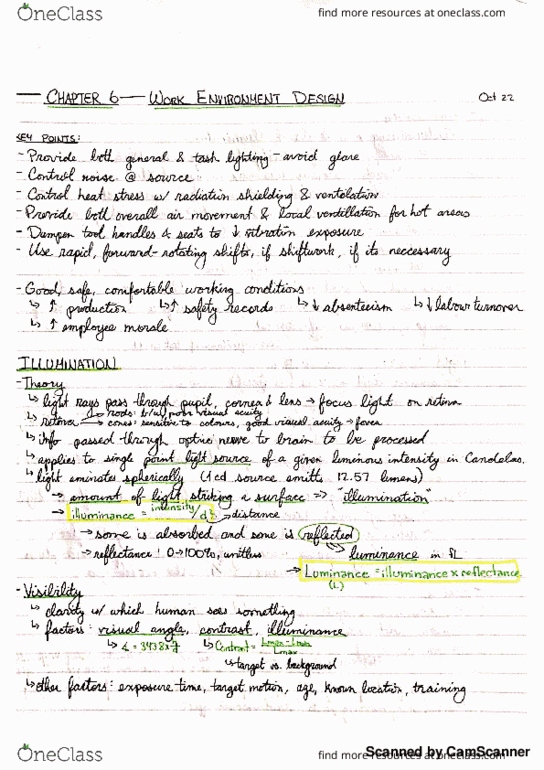 OneClass
find more resources at oneclass.com
CHAPTER 6 — WORK ENVIRONMENT DESIGN
Oct 22
KEY POINTS:
- Provide both general & task lighting - avoid glare
- Control noise @ source
- Control heat stress w/ radiation shielding & ventilation
- Provide both overall air movement & local ventillation for hot areas
- Dampen tool handles & seats to ↓ vibration exposure
- Use rapid, forward-rotating shifts, if shiftwork, if its neccessary
- Good, safe, comfortable working conditions
↳ ↑ production ↳ ↑ safety records ↳ ↓ absenteeism ↳ ↓ labour turnover
↳ ↑ employee morale
ILLUMINATION
- Theory
↳ light rays pass through pupil, cornea & lens → focus light on retina
↳ retina → rods: b/w, poor visual acuity
→ cones: sensitive to colours, good visual acuity → fovea
↳ info passed through optic nerve to brain to be processed
↳ applies to single point light source of a given luminous intensity in Candelas.
↳ light eminates spherically (1 cd source emitts 12.57 lumens)
→ amount of light striking a surface => "illumination"
→ illuminance = intensity/d² → distance
→ some is absorbed and some is reflected
→ reflectance: 0→100%, unitless
luminance in fL
→ Luminance = illuminance x reflectance
(L)
- Visibility
↳ clarity w/ which human sees something
↳ factors: visual angle, contrast, illuminance
↳ ∡ = 3438 x ↳ Contrast = Lmax - Lmin / Lmax
↳ target vs. background
↳ other factors: exposure time, target motion, age, known location, training
OneClass
find more resources at oneclass.com
Scanned by CamScanner